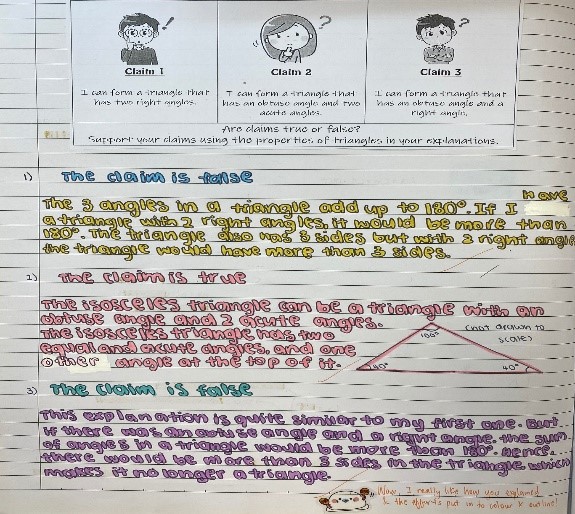 Claim 1
Claim 2
Claim 3
I can form a triangle that
has two right angles.
I can form a triangle that
has an obtuse angle and two
acute angles.
I can form a triangle that
has an obtuse angle and a
right angle.
Are claims true or false?
Support your claims using the properties of triangles in your explanations.
1) The claim is false
The 3 angles in a triangle add up to 180°. If I have
a triangle with 2 right angles, it would be more than
180°. The triangle also has 3 sides but with 2 right angle
the triangle would have more than 3 sides.
2) The claim is true
The isosceles triangle can be a triangle with an
obtuse angle and 2 acute angles.
The isosceles triangle has two
equal and acute angles, and one
other angle at the top of it.
(not drawn to
scale)
100°
40°
40°
3) The claim is false
This explanation is quite similar to my first one. But
if there was an obtuse angle and a right angle, the sum
of angles in a triangle would be more than 180°. Hence,
there would be more than 3 sides in the triangle which
makes it no longer a triangle.
Wow, I really like how you explained
& the efforts put in to colour & outline!